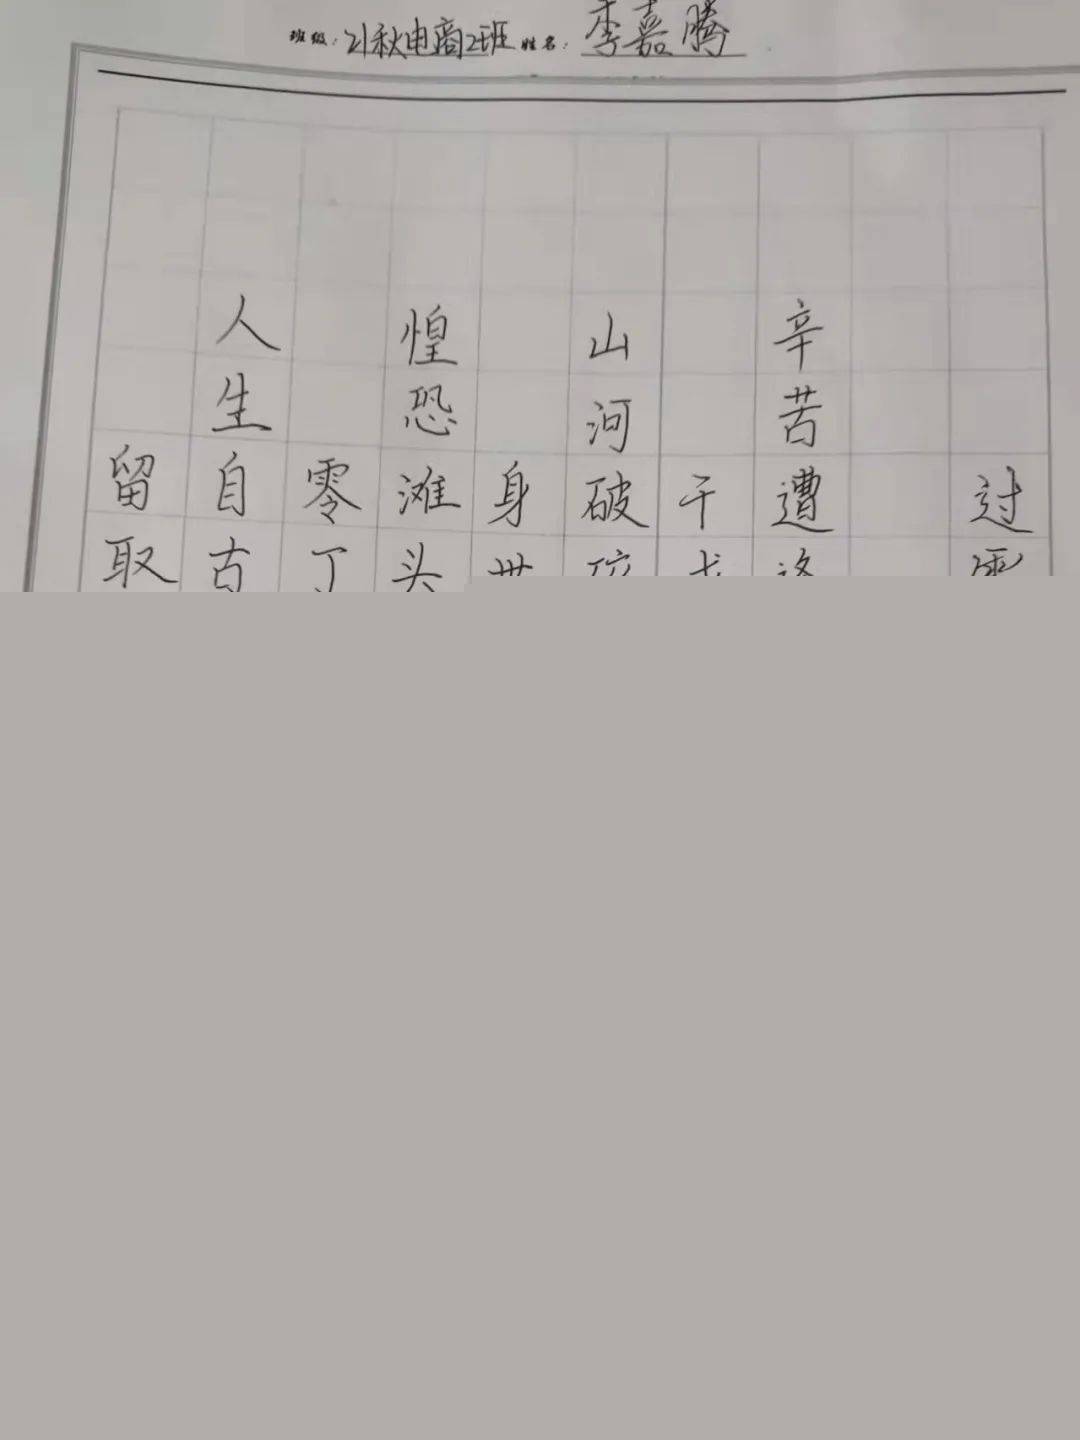 班级：21秋电商2班 姓名：李嘉腾
过
辛苦遭
干
山河破
身
惶恐滩头
零丁
人生自古
留取